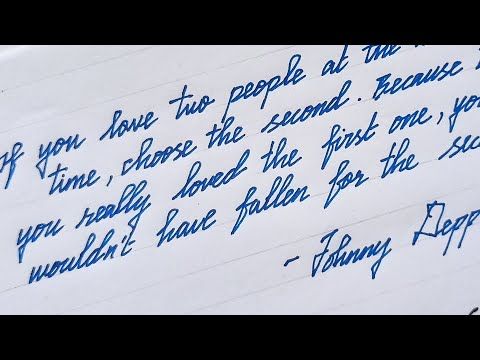 If you love two people at the
time, choose the second. Because
you really loved the first one, yo
wouldn't have fallen for the sec
- Johnny Depp